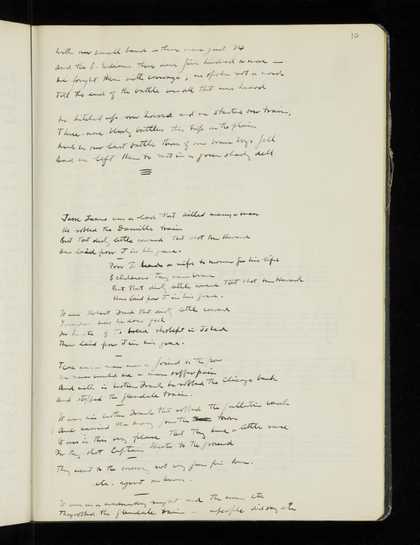 10
With our small band there were just 24
And the Indians there were five hundred or more
We fought them with courage, we spoke not a word
Till the end of the battle was all that was heard
We hitched up our horses and we started our train,
Three more bloody battles this trip on the plain
And in our last battle three of our brave boys fell
And we left them to rest in a green shady dell
Jesse James was a lad that killed many a man
He robbed the Danville train
But that dirty little coward that shot Mr Howard
Has laid poor J in his grave.
Poor J had a wife to mourn for his life
3 children they were brave
But that dirty little coward that shot Mr Howard
Has laid poor J in his grave.
It was Robert Ford that dirty little coward
how he does feel
For he ate of J's bread & slept in J's bed
Then laid poor J in his grave.
was a man a friend to the poor
a man suffer pain
And with his brother Frank he robbed the Chicago bank
And stopped the Glendale train.
It was his brother Frank that robbed the Gallatin bank
And carried the money from the town
It was in this very place that they had a little race
For they shot Captain Sheets to the ground
They went to the crossing not very far from there
etc.
It was on a moonlight night and the etc
They robbed the Glendale train people did say etc